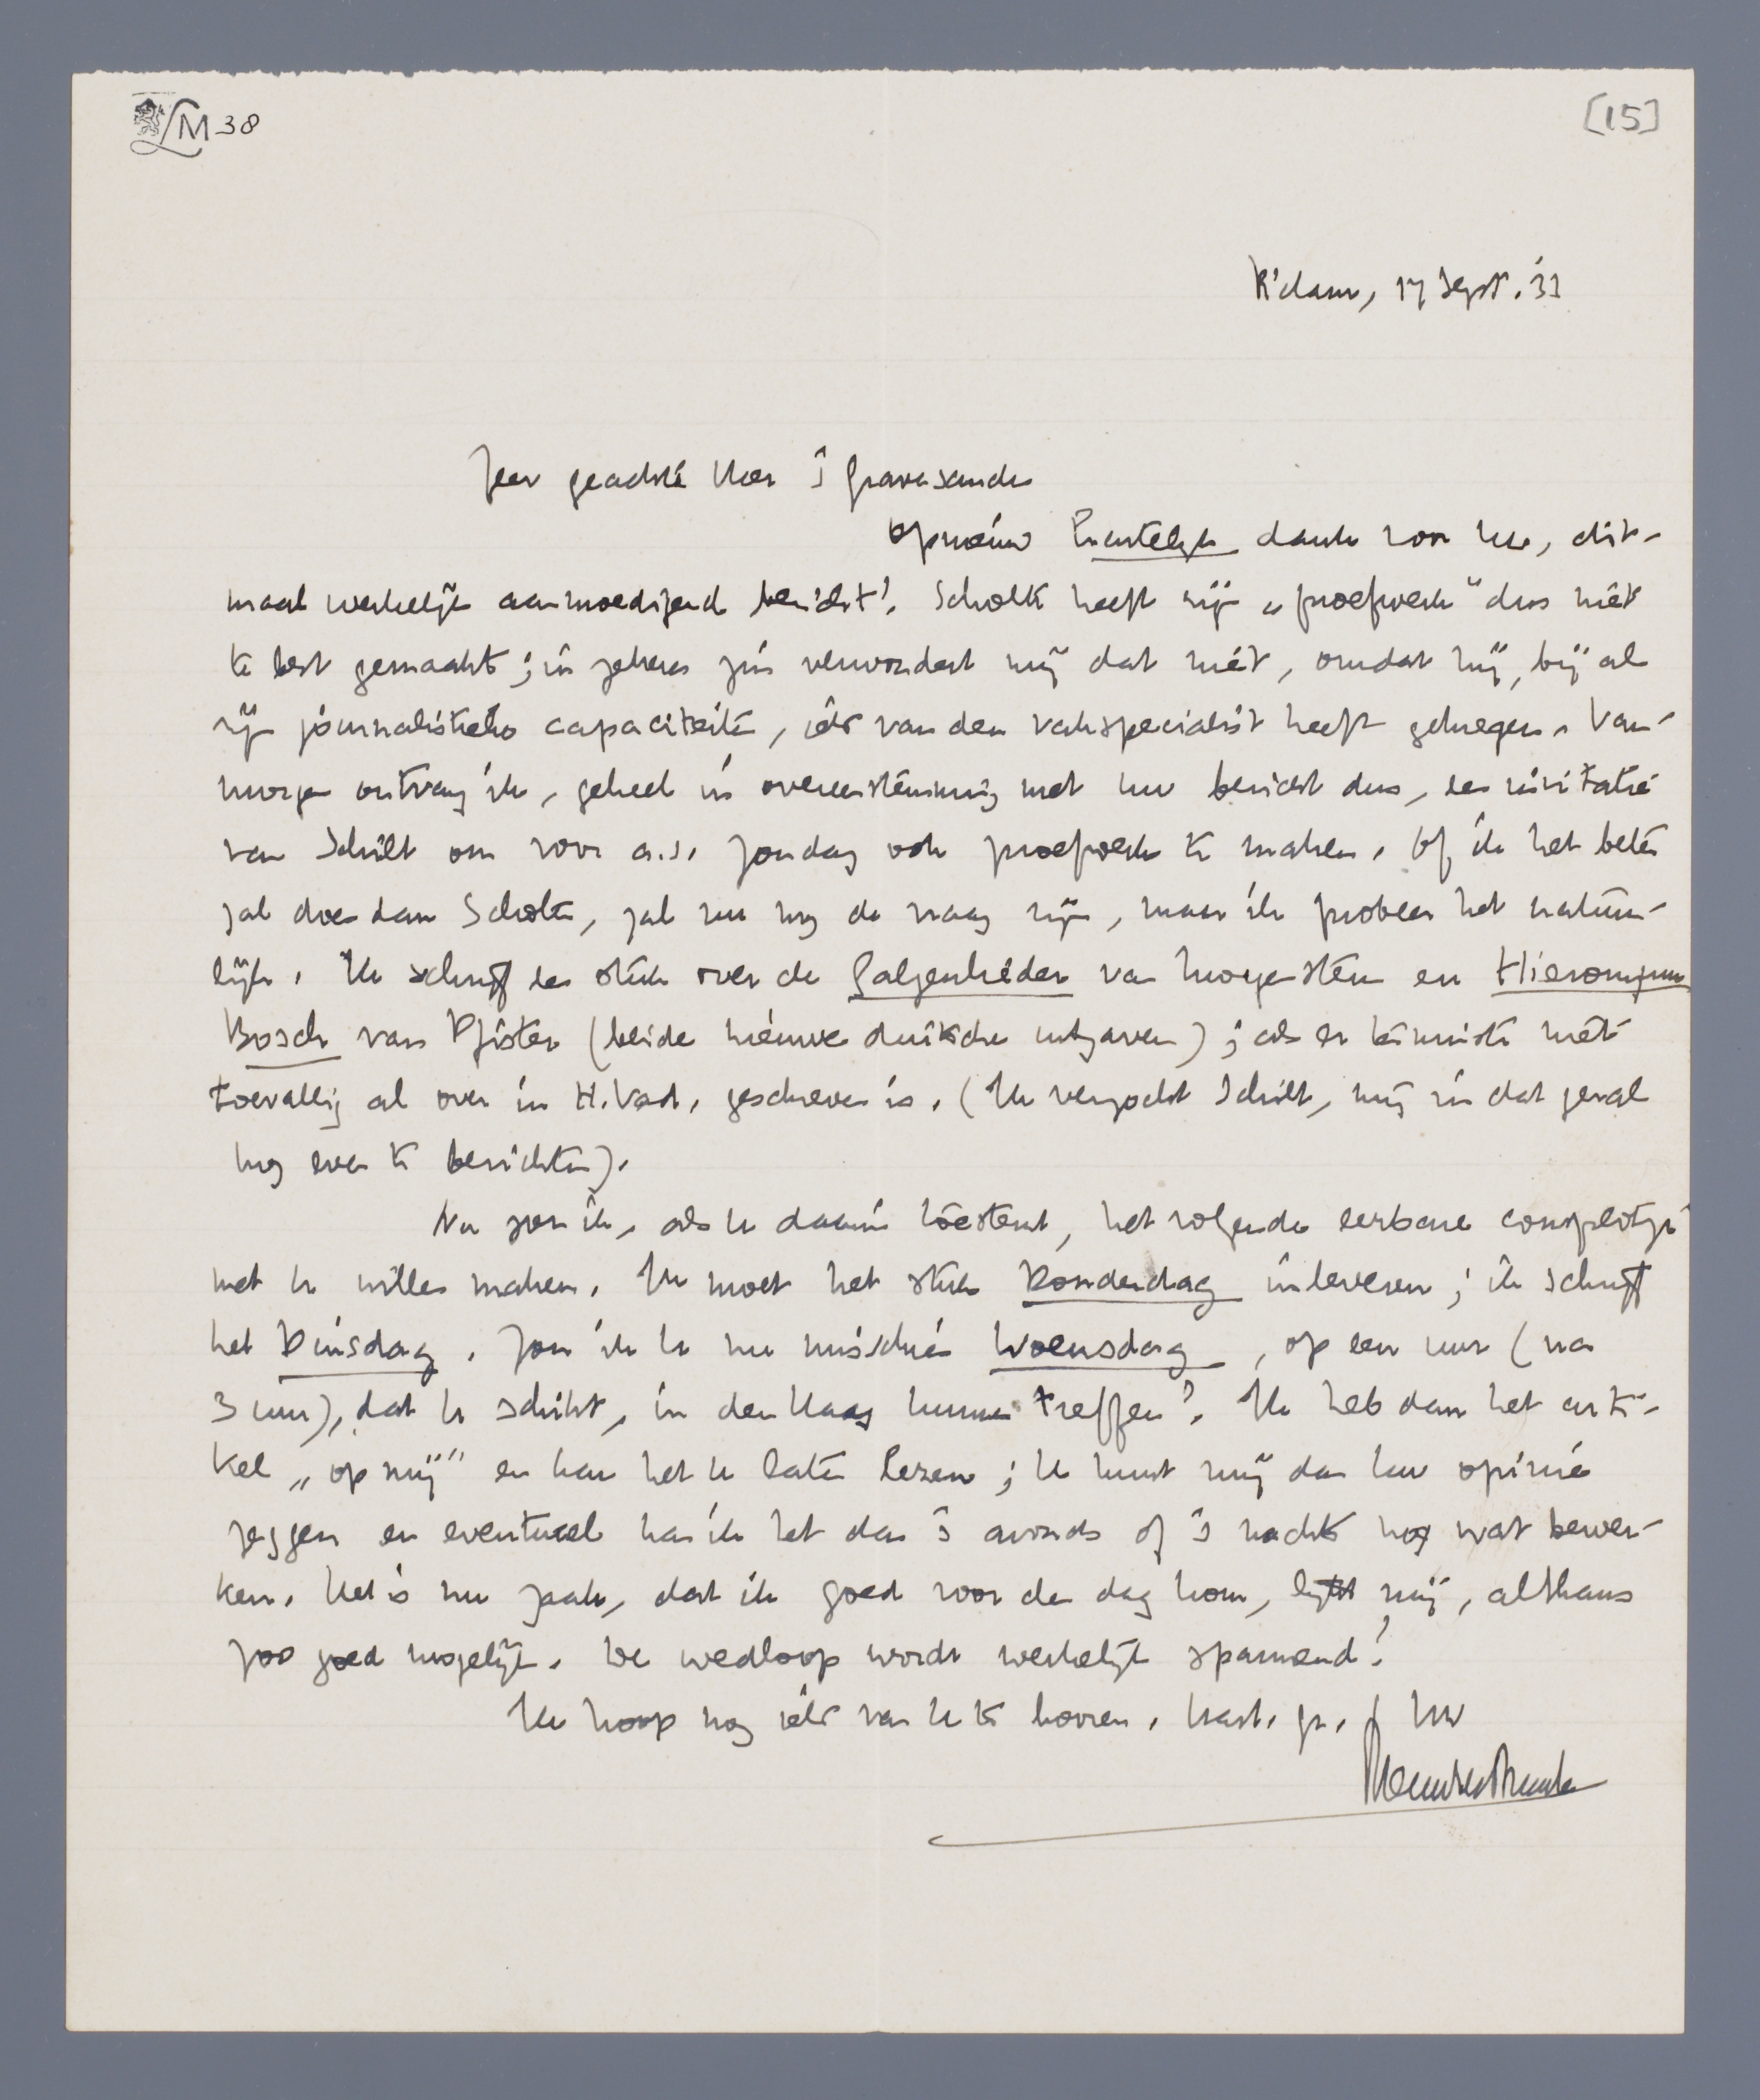 LM 38
[15]
R'dam, 17 Sept. '33
Zeer geachte Heer 's Gravesande
Opnieuw hartelijk dank voor Uw, dit-
maal werkelijk aanmoedigend bericht! Scholte heeft zijn „proefwerk" dus niet
te best gemaakt; in zekeren zin verwondert mij dat niet, omdat hij, bij al
zijn journalistieke capaciteiten, iets van den vakspecialist heeft gekregen. Van-
morgen ontving ik, geheel in overeenstemming met uw bericht dus, een invitatie
van Schilt om voor a.s. Zondag ook proefwerk te maken. Of ik het beter
zal doen dan Scholte, zal nu nog de vraag zijn, maar ik probeer het natuur-
lijk. Ik schrijf een stuk over de Galgenlieder van Morgenstern en Hieronymus
Bosch van Pfister (beide nieuwe duitsche uitgaven); als er tenminste niet
toevallig al over in H. Vad. geschreven is. (Ik verzocht Schilt, mij in dat geval
nog even te berichten).
Nu zou ik, als U daarin toestemt, het volgende eerbare complotje
met U willen maken. Ik moet het stuk Donderdag inleveren; ik schrijf
het Dinsdag. Zou ik U nu misschien Woensdag, op een uur (na
3 uur), dat U schikt, in den Haag kunnen treffen? Ik heb dan het arti-
kel „op mij" en kan het U laten lezen; U kunt mij dan Uw opinie
zeggen en eventueel kan ik het dan 's avonds of 's nachts nog wat bewer-
ken. Het is nu zaak, dat ik goed voor den dag kom, lijkt mij, althans
zoo goed mogelijk. De wedloop wordt werkelijk spannend!
Ik hoop nog iets van U te hooren. Hart. gr. Uw
Menno ter Braak